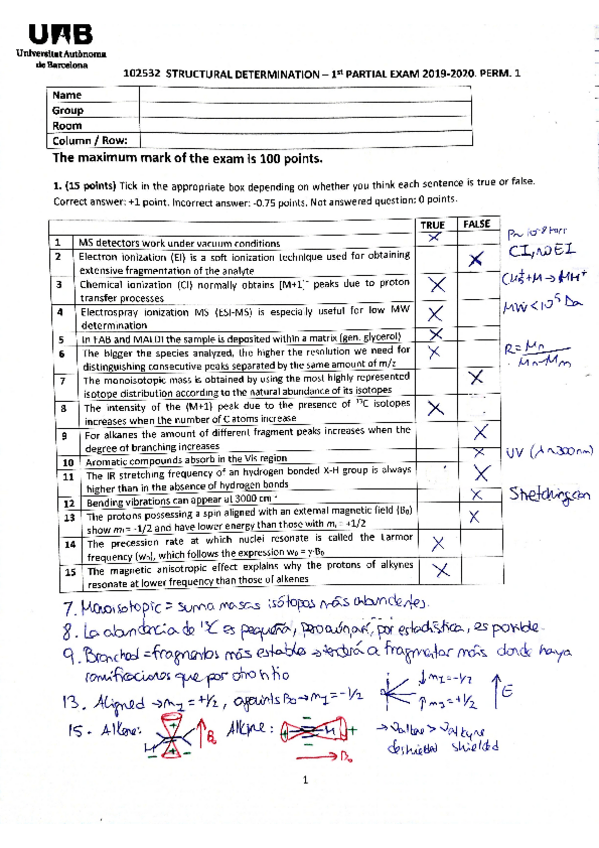 UAB
Universitat Autònoma
de Barcelona
102532 STRUCTURAL DETERMINATION – 1st PARTIAL EXAM 2019-2020. PERM. 1
Name
Group
Room
Column / Row:
The maximum mark of the exam is 100 points.
1. (15 points) Tick in the appropriate box depending on whether you think each sentence is true or false.
Correct answer: +1 point. Incorrect answer: -0.75 points. Not answered question: 0 points.
TRUE FALSE
1 MS detectors work under vacuum conditions X
2 Electron ionization (EI) is a soft ionization technique used for obtaining X CI, no EI
extensive fragmentation of the analyte
3 Chemical ionization (CI) normally obtains [M+1]+ peaks due to proton X CH5+ + M → MH+
transfer processes
4 Electrospray ionization MS (ESI-MS) is especially useful for low MW X MW < 10^5 Da
determination
5 In FAB and MALDI the sample is deposited within a matrix (gen. glycerol) X
6 The bigger the species analyzed, the higher the resolution we need for X R =
distinguishing consecutive peaks separated by the same amount of m/z
7 The monoisotopic mass is obtained by using the most highly represented X
isotope distribution according to the natural abundance of its isotopes
8 The intensity of the (M+1) peak due to the presence of 13C isotopes X
increases when the number of C atoms increase
9 For alkanes the amount of different fragment peaks increases when the X
degree of branching increases
10 Aromatic compounds absorb in the Vis region X UV (λ~300nm)
11 The IR stretching frequency of an hydrogen bonded X-H group is always X
higher than in the absence of hydrogen bonds
12 Bending vibrations can appear at 3000 cm-1 X Stretching can
13 The protons possessing a spin aligned with an external magnetic field (B0) X
show mI = -1/2 and have lower energy than those with mI = +1/2
14 The precession rate at which nuclei resonate is called the Larmor X
frequency (w0), which follows the expression w0 = γ·B0
15 The magnetic anisotropic effect explains why the protons of alkynes X
resonate at lower frequency than those of alkenes
7. Monoisotopic = suma masas isótopos más abundantes.
8. La abundancia de 13C es pequeña, pero aún así, por estadística, es posible.
9. Branched = fragmentos más estables → tenderá a fragmentar más donde haya
ramificaciones que por otro sitio
13. Aligned → mI = +1/2, against B0 → mI = -1/2 ↓ mI = -1/2
↑ mI = +1/2 E
15. Alkene: H B0 Alkyne: H + → B0 → νalkene > νalkyne
deshielded shielded
1